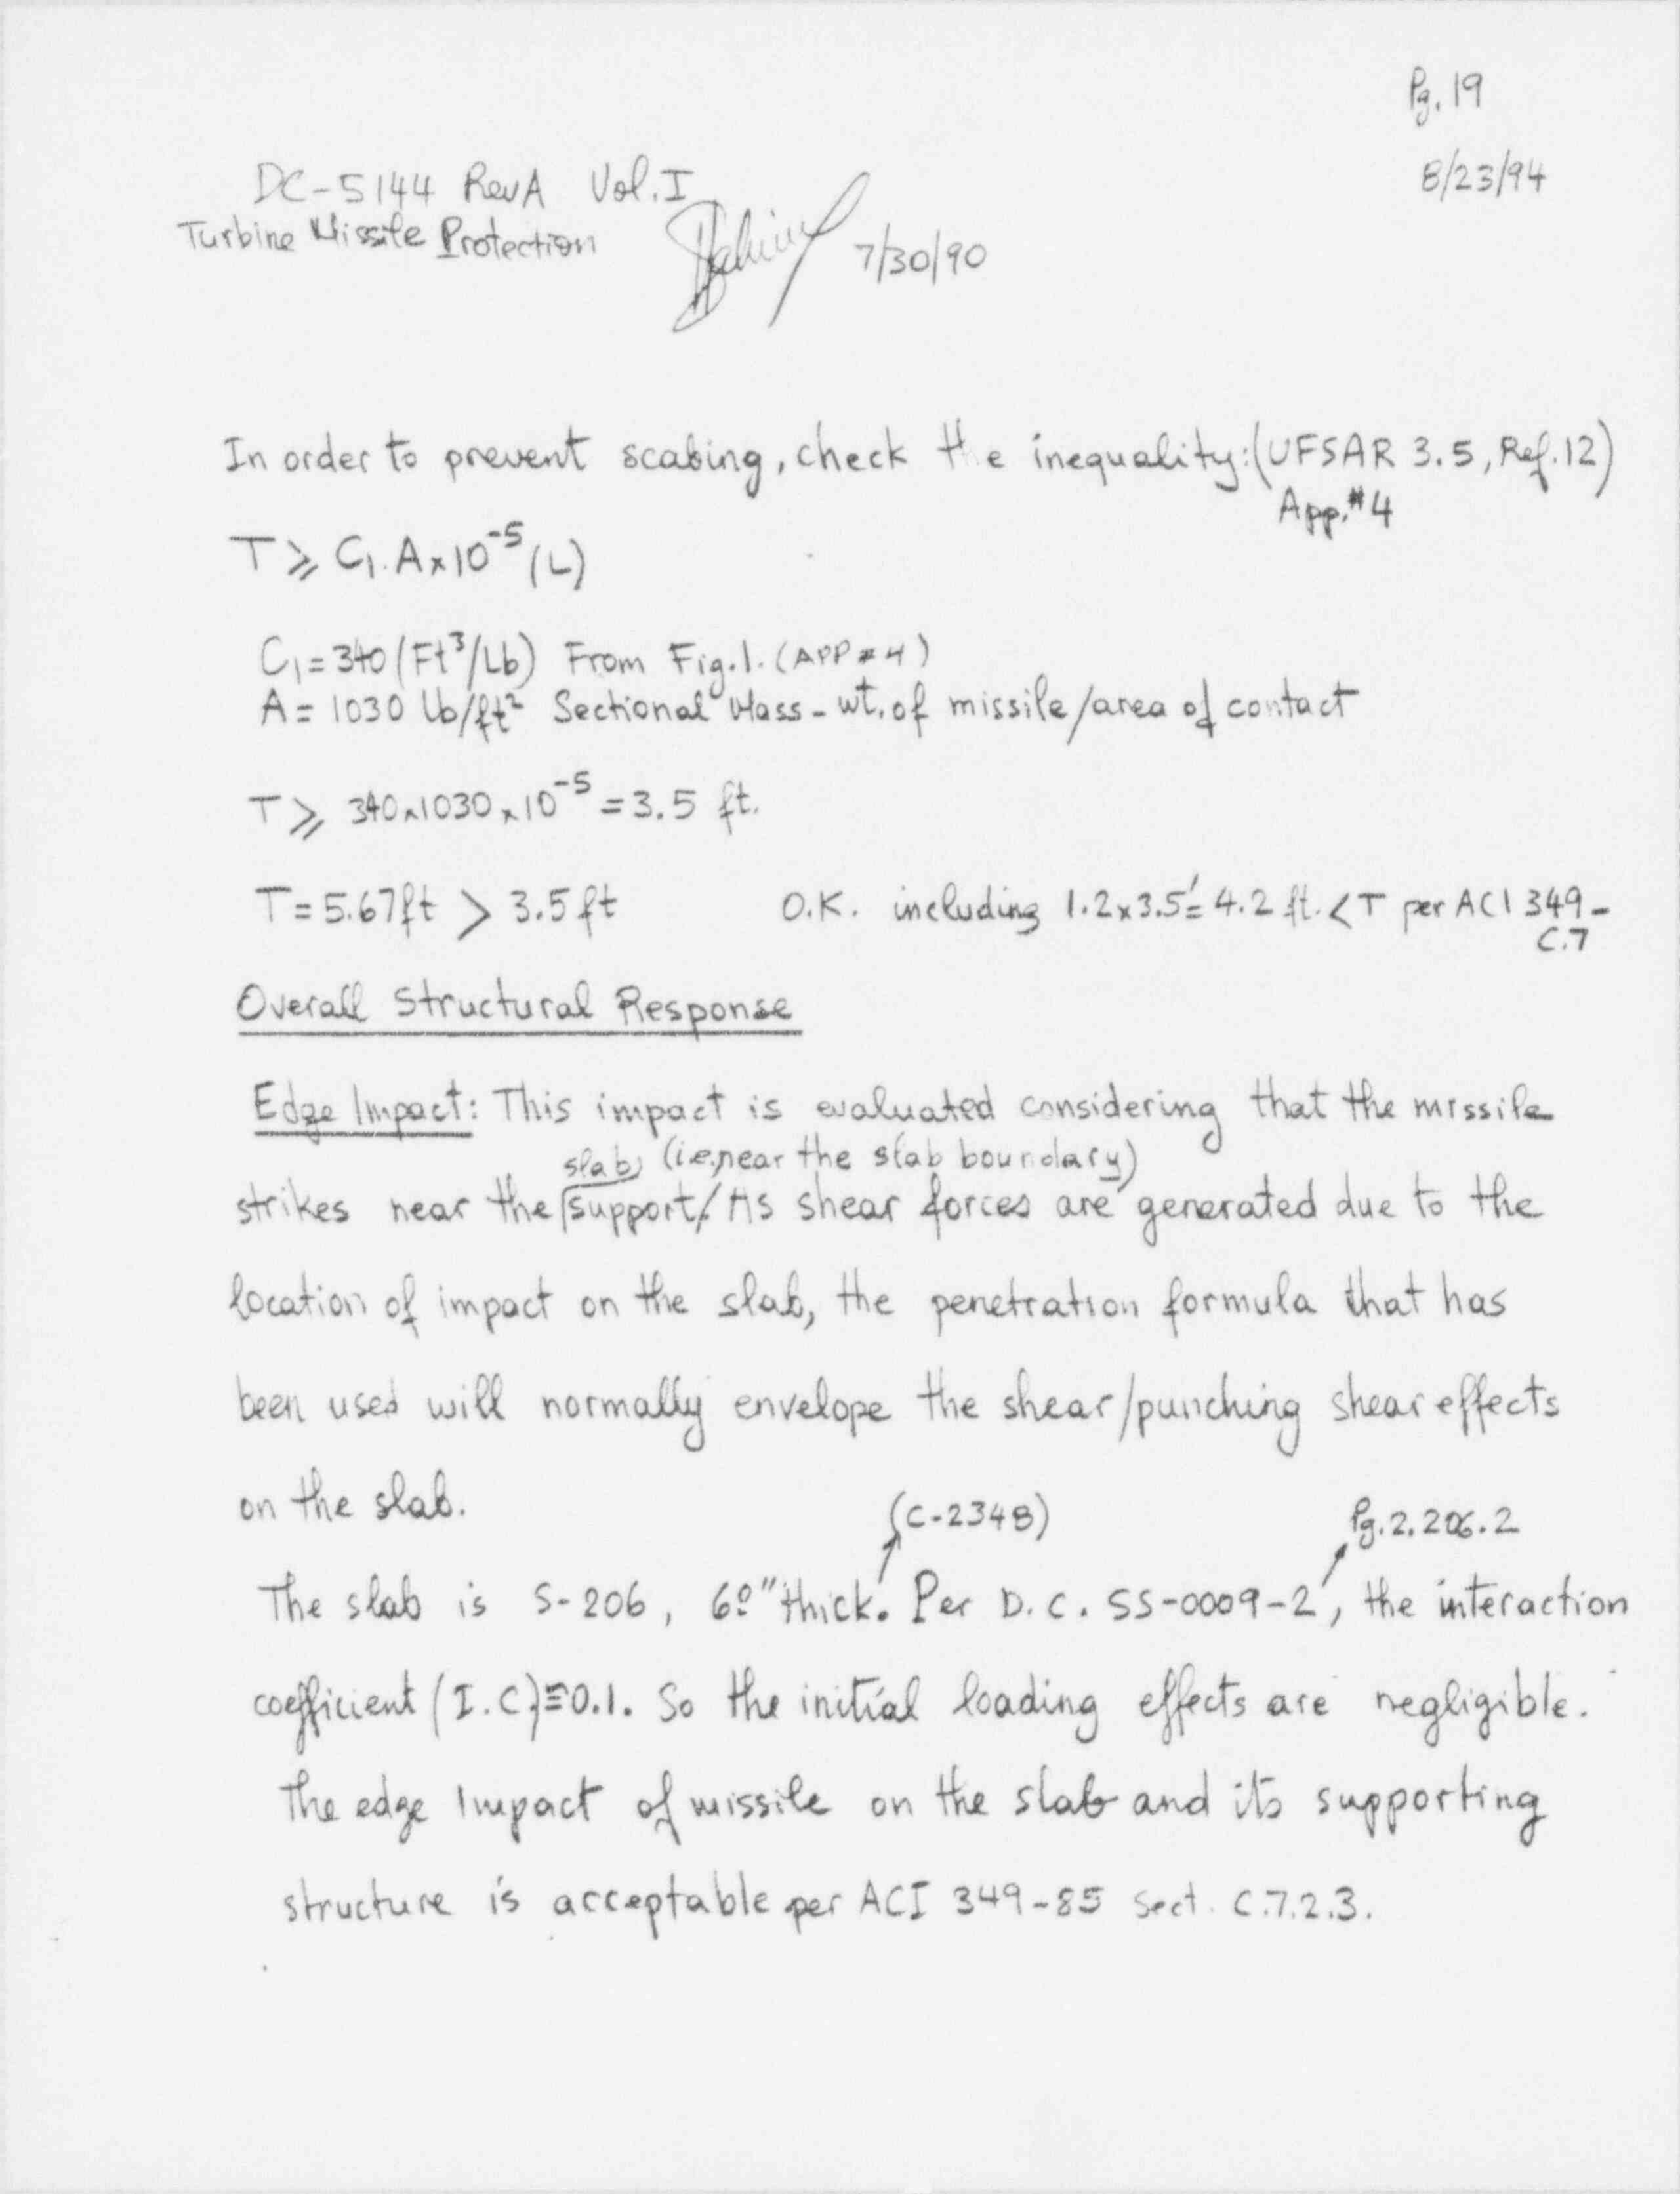 Pg. 19
8/23/94
DC-5144 Rev A Vol. I
Turbine Missile Protection
7/30/90
In order to prevent scabing, check the inequality: (UFSAR 3.5, Ref. 12)
App. #4
T ⩾ C₁. A x 10⁻⁵ (L)
C₁ = 340 (Ft³/Lb) From Fig. 1. (APP # 4)
A = 1030 Lb/ft² Sectional Mass - wt. of missile/area of contact
T ⩾ 340 x 1030 x 10⁻⁵ = 3.5 ft.
T = 5.67 ft > 3.5 ft O.K. including 1.2 x 3.5' = 4.2 ft. < T per ACI 349-
C.7
Overall Structural Response
Edge Impact: This impact is evaluated considering that the missile
slab (i.e. near the slab boundary)
strikes near the support. As shear forces are generated due to the
location of impact on the slab, the penetration formula that has
been used will normally envelope the shear/punching shear effects
on the slab.
(C-2348) Pg. 2.206.2
The slab is S-206, 68" thick. Per D.C. SS-0009-2, the interaction
coefficient (I.C) = 0.1. So the initial loading effects are negligible.
The edge Impact of missile on the slab and its supporting
structure is acceptable per ACI 349-85 Sect. C.7.2.3.